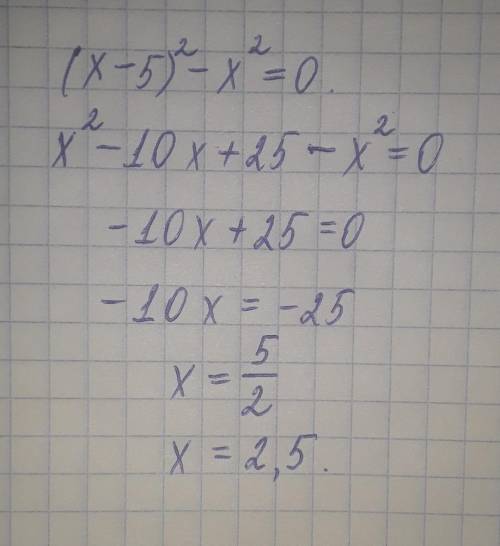 (x-5)² - x² = 0.
x² - 10x + 25 - x² = 0
-10x + 25 = 0
-10x = -25
x = 5/2
x = 2,5.